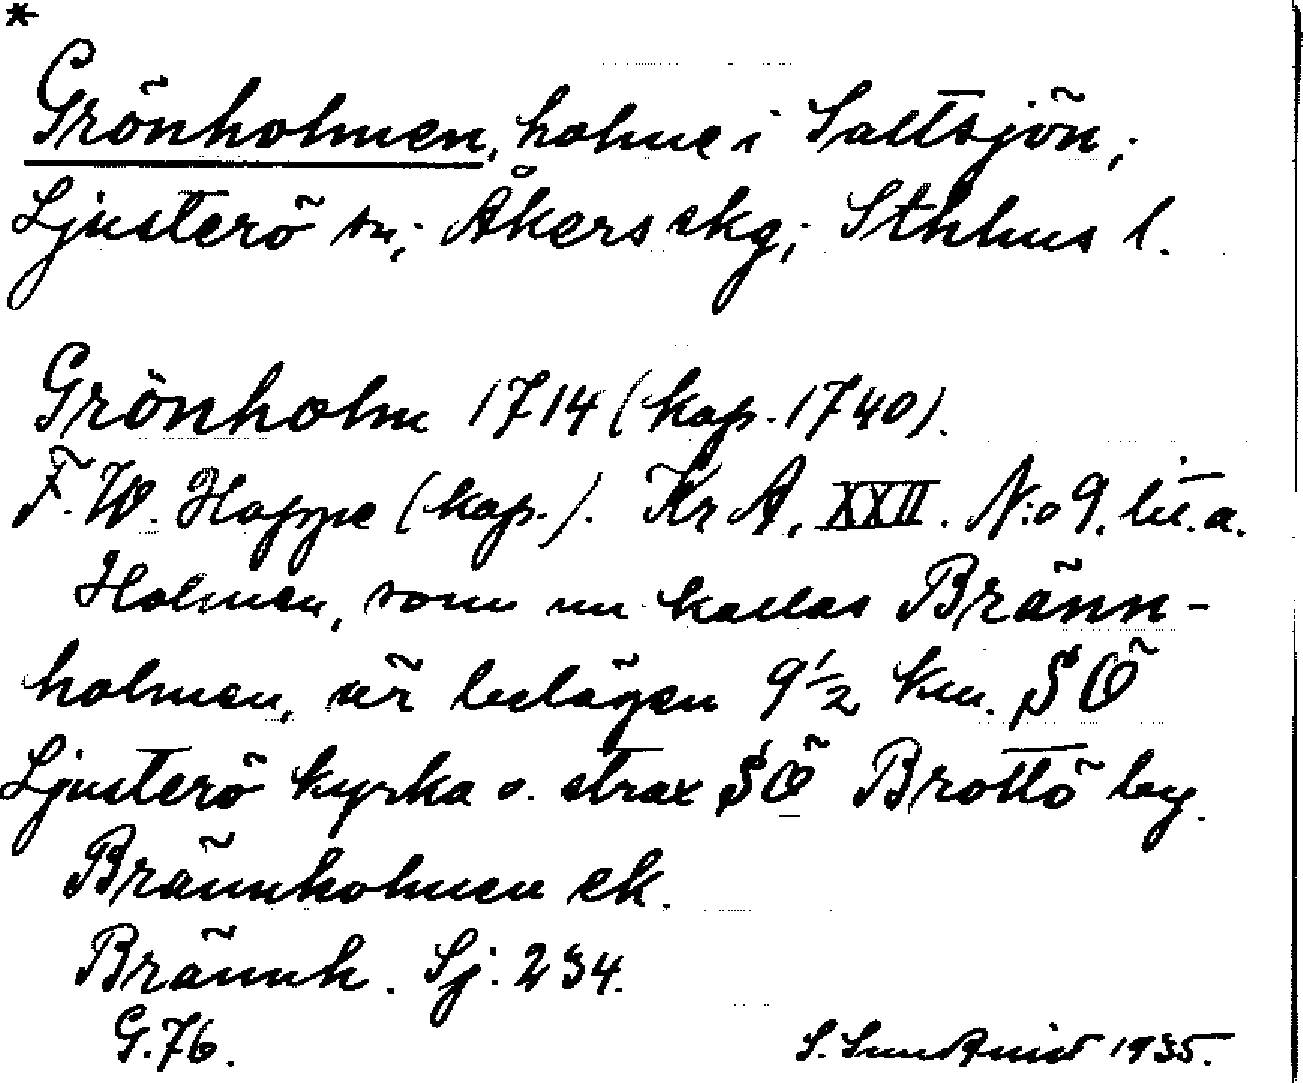 *
Grönholmen, holme i Saltsjön,;
Ljusterö sn,; Åkers skg,; Sthlms l.
Grönholm 1714 (kop. 1740).
F. W. Hoppe (kop.). Kr A. XXII. N:o 9. lit. a.
Holmen, som nu kallas Bränn-
holmen, är belägen 9 1/2 km. SÖ
Ljusterö kyrka o. strax SÖ Brottö by.
Brännholmen ek.
Brännh. Sj. 234.
G. 76.
S. Sundquist 1935.